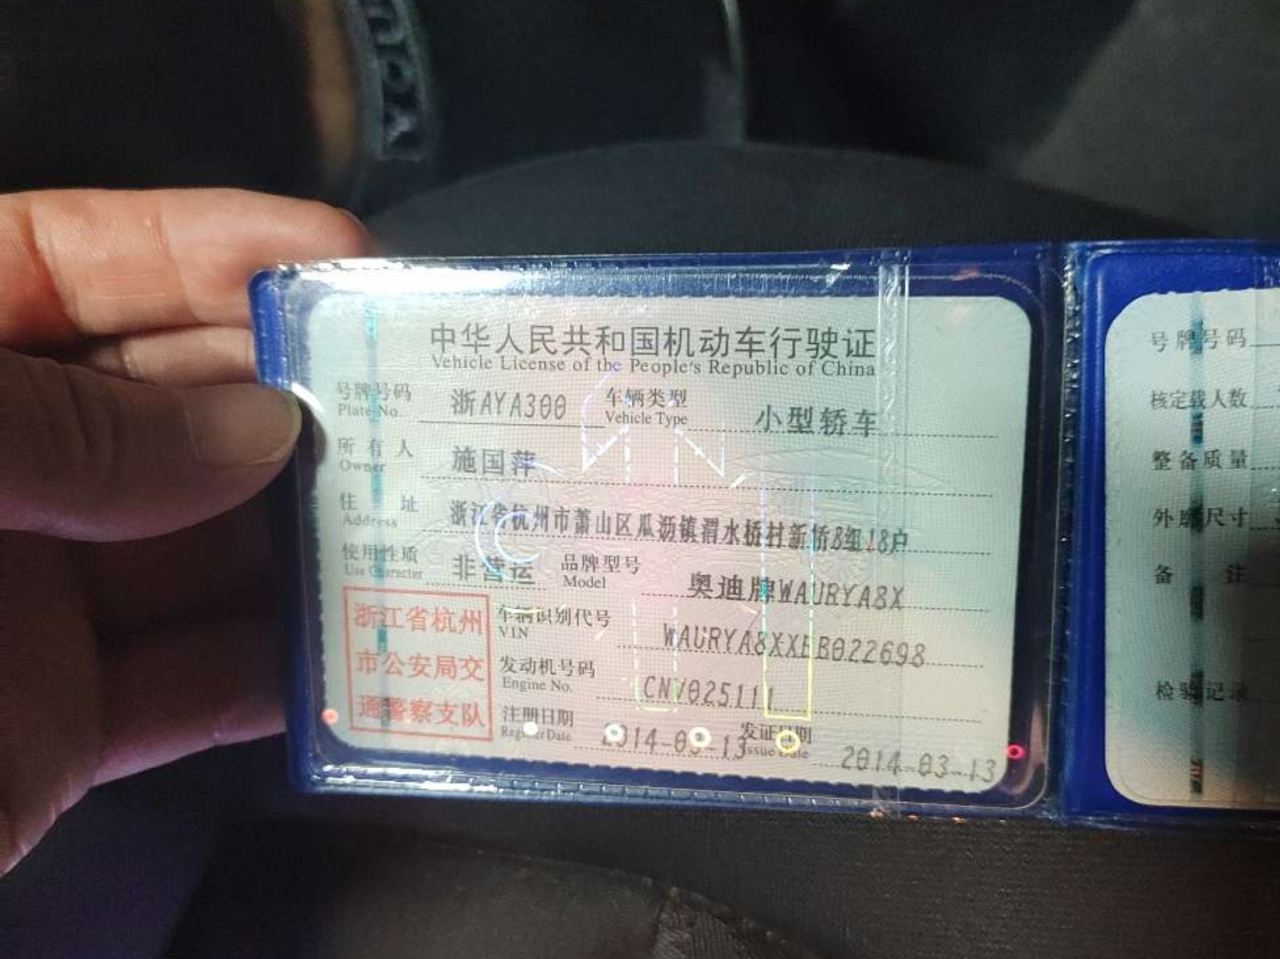 中华人民共和国机动车行驶证
Vehicle License of the People's Republic of China
号牌号码 浙AYA300 车辆类型 小型轿车
Plate No. Vehicle Type
所有人 施国萍
Owner
住址 浙江省杭州市萧山区瓜沥镇渭水桥村新桥8组18户
Address
使用性质 非营运 品牌型号 奥迪牌WAURYA8X
Use Character Model
浙江省杭州
市公安局交
通警察支队
车辆识别代号 WAURYA8XXEB022698
VIN
发动机号码 CNV025111
Engine No.
注册日期 2014-03-13 发证日期 2014-03-13
Register Date Issue Date
号牌号码
核定载人数
整备质量
外廓尺寸
备注
检验记录